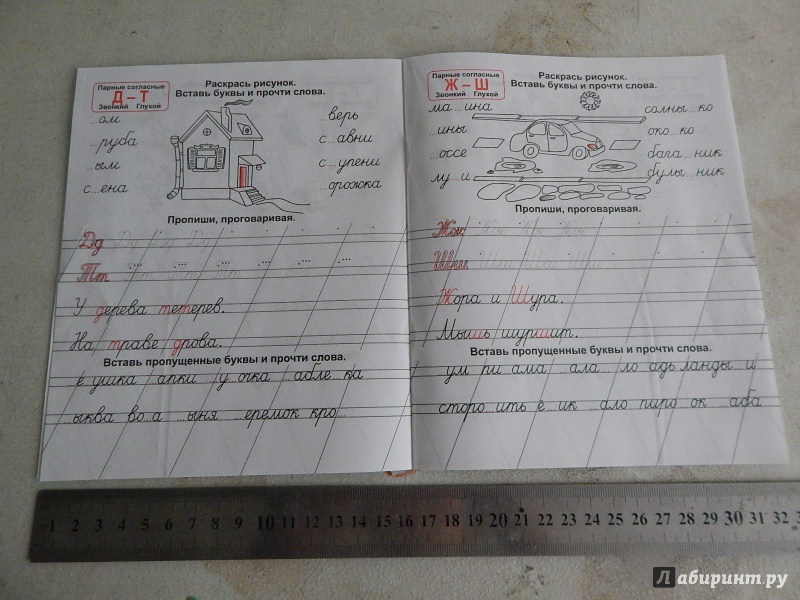 Парные согласные
Д – Т
Звонкий Глухой
Раскрась рисунок.
Вставь буквы и прочти слова.
...ом
...верь
...руба
с...авни
...ым
с...упени
с...ена
...орожка
Пропиши, проговаривая.
Дд Дд Дд Дд
Тт Тт Тт Тт
У дерева тетерев.
На траве дрова.
Вставь пропущенные буквы и прочти слова.
е...ушка ...апки у...очка ...абле...ка
...ыква во...а ...ыня ...еремок кро...
Парные согласные
Ж – Ш
Звонкий Глухой
Раскрась рисунок.
Вставь буквы и прочти слова.
ма...ина
солны...ко
...ины
око...ко
...оссе
бага...ник
лу...и
булы...ник
Пропиши, проговаривая.
Жж Жж Жж Жж
Шш Шш Шш Шш
Жора и Шура.
Мышь шуршит.
Вставь пропущенные буквы и прочти слова.
...ум пи...ама ...ала... ло...адь ланды...и
сторо...ить ё...ик ...ало пиро...ок ...аба
1 2 3 4 5 6 7 8 9 10 11 12 13 14 15 16 17 18 19 20 21 22 23 24 25 26 27 28 29 30 31 32
Лабиринт.ру